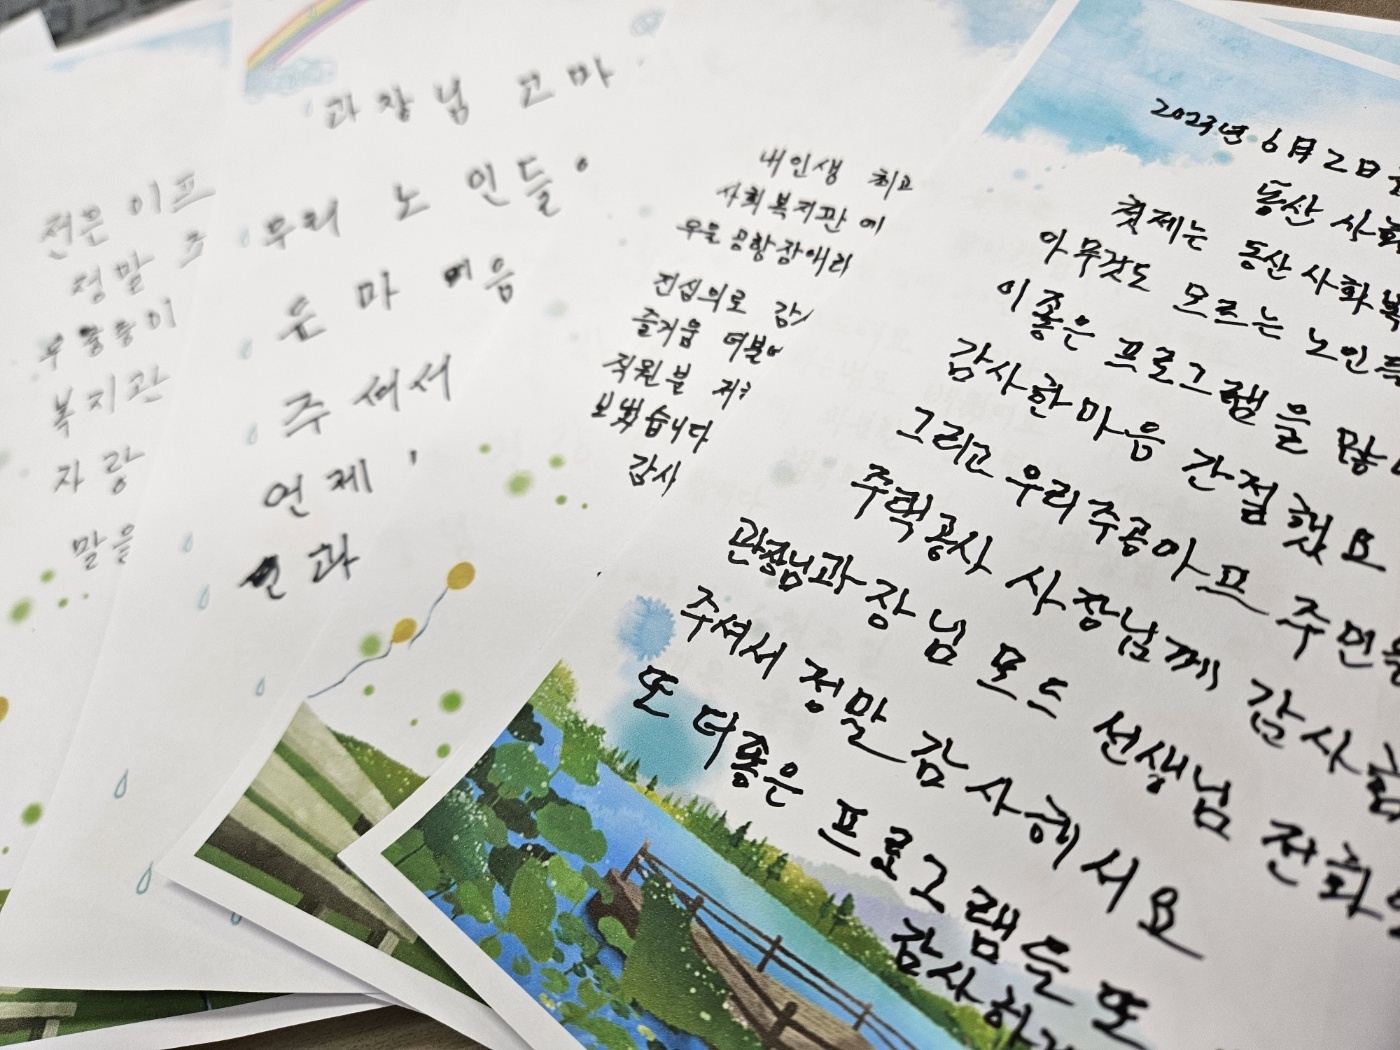 전은 이프
정말
복지관
자랑
말을
과장님 고마
우리 노인들
운 마음
주셔서
언제
내인생 최고
사회복지관에
우울 공황장애리
진심의로 감
즐거움 더불어
직원분
보냈습니다
감사
2023년 6월 2일
동산 사회
첫제는 동산사회복
아무것도 모르는 노인
이좋은 프로그램을 많
감사한마음 간절했요
그리고 우리주공아프 주민
주택공사 사장님께 감사합
관장님과장님 모드 선생님 전화
주셔서 정말 감사해서요
또 더좋은 프로그램들 또
감사하